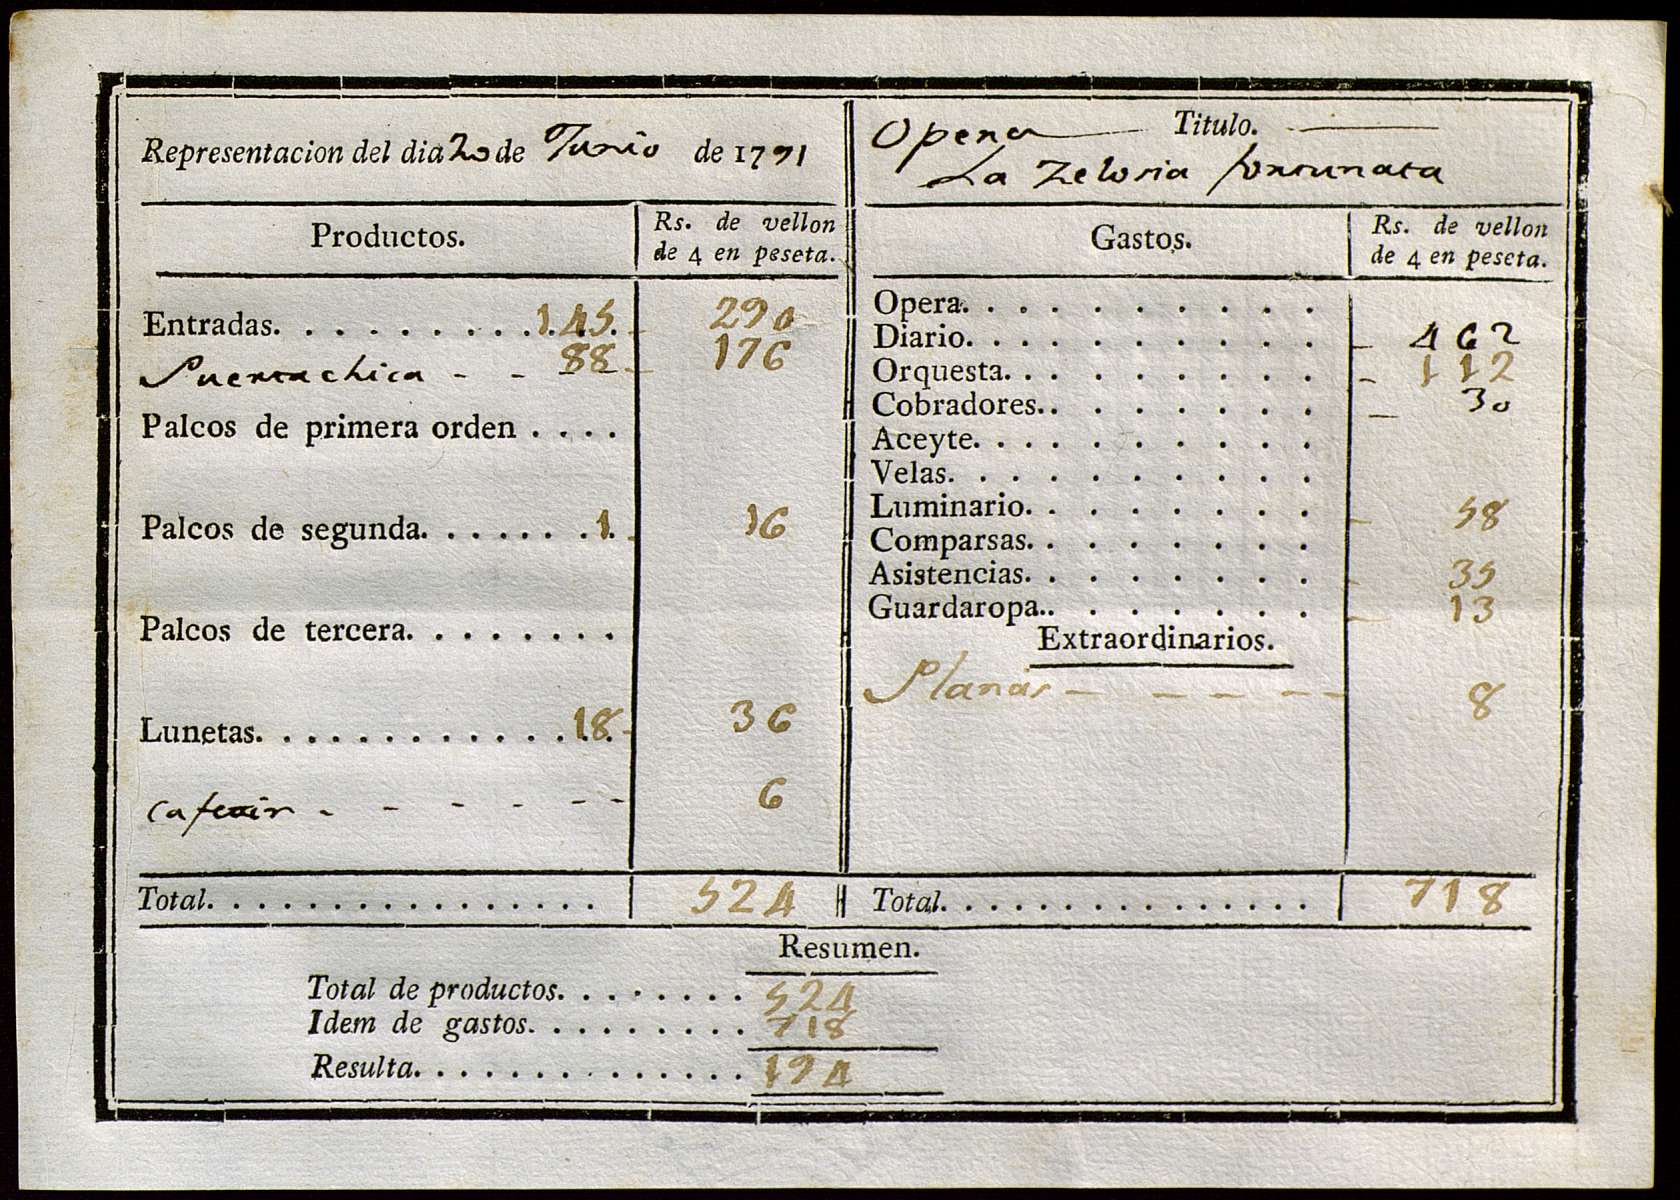 Representacion del dia 20 de Junio de 1791
Opera Titulo.
La Zelosia fortunata
Productos.
Rs. de vellon
de 4 en peseta.
Entradas. 145 290
Puerta chica 88 176
Palcos de primera orden
Palcos de segunda. 1 16
Palcos de tercera.
Lunetas. 18 36
6
Total. 524
Gastos.
Rs. de vellon
de 4 en peseta.
Opera.
Diario. 462
Orquesta. 112
Cobradores. 30
Aceyte.
Velas.
Luminario. 58
Comparsas.
Asistencias. 35
Guardaropa. 13
Extraordinarios.
Planas 8
Total. 718
Resumen.
Total de productos. 524
Idem de gastos. 718
Resulta. 194